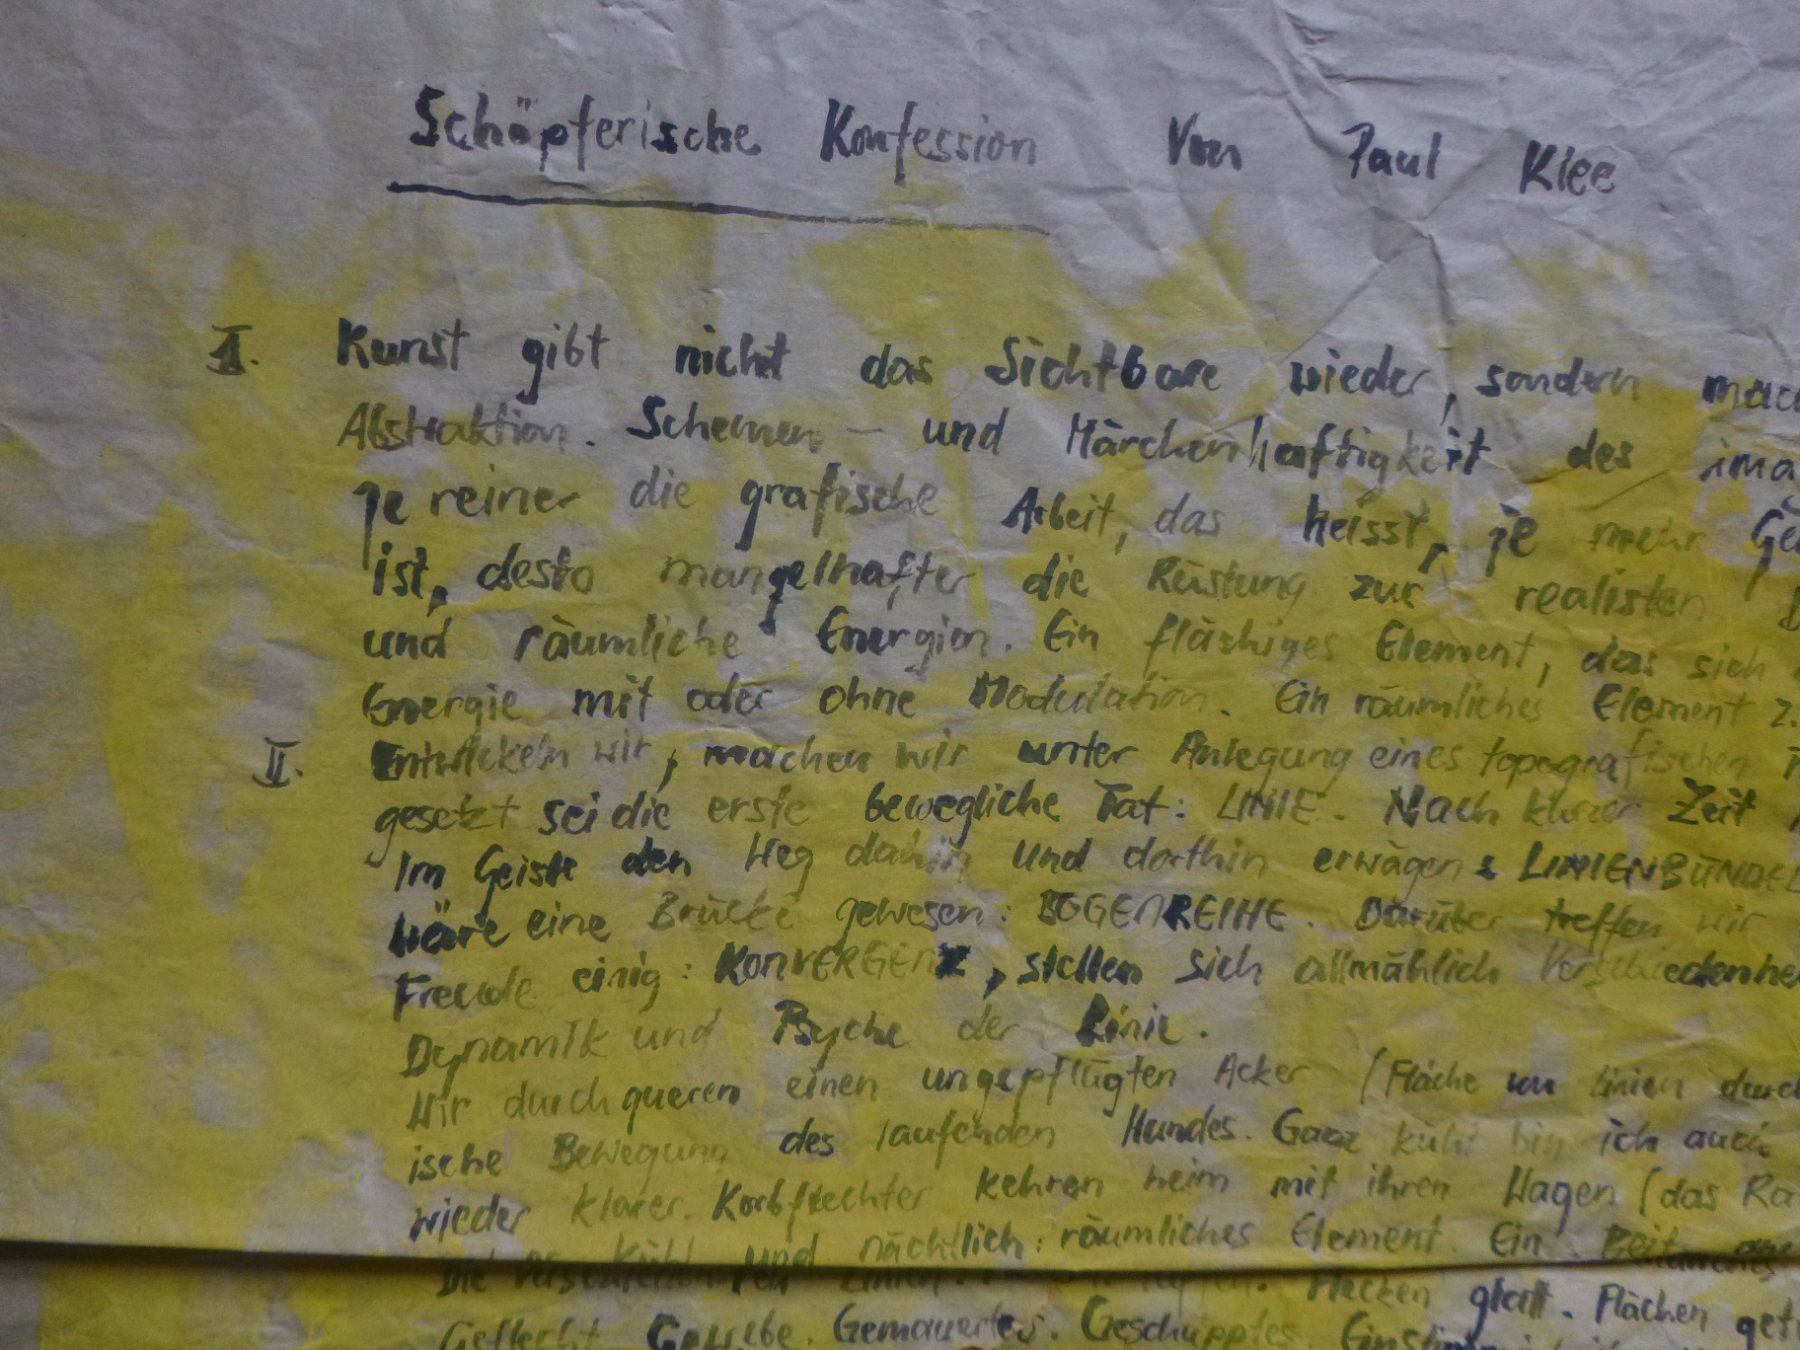 Schöpferische Konfession Von Paul Klee
I. Kunst gibt nicht das Sichtbare wieder, sondern mac
Abstraktion. Schemen – und Märchenhaftigkeit des ima
Je reiner die grafische Arbeit, das heisst, je mehr Ge
ist, desto mangelhafter die Rüstung zur realisten D
und räumliche Energien. Ein flächiges Element, das sich
Energie mit oder ohne Modulation. Ein räumliches Element z.
II. Entwickeln wir, machen wir unter Anlegung eines topografischen
gesetzt sei die erste bewegliche Tat: LINIE. Nach kurzer Zeit
Im Geiste den Weg dahin und dorthin erwägen: LINIENBÜNDEL
wäre eine Brücke gewesen: BOGENREIHE. Darüber treffen wir
Freude einig: KONVERGENZ, stellen sich allmählich Verschiedenhe
Dynamik und Psyche der Linie.
Wir durchqueren einen ungepflügten Acker (Fläche von Linien durch
ische Bewegung des laufenden Hundes. Ganz kühl bin ich auch
wieder klarer. Korbflechter kehren heim mit ihren Wagen (das Ra
kühl und nächtlich: räumliches Element. Ein
Die Linien. Flecken glatt. Flächen get
Geflecht Gewebe. Gemauertes. Geschupptes.